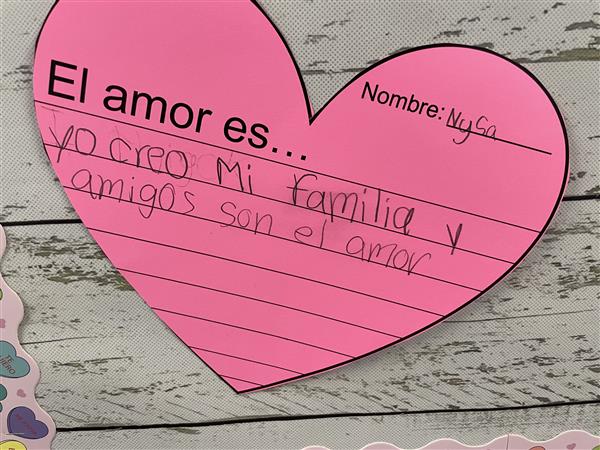 El amor es...
Nombre: Nysa
yo creo Mi familia y
amigos son el amor
TE